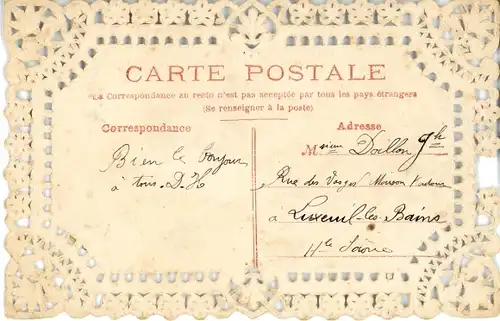 CARTE POSTALE
*La Correspondance au recto n'est pas acceptée par tous les pays étrangers
(Se renseigner à la poste)
Correspondance
Bien le bonjour
à tous. D. H
Adresse
Msieur Doillon Gh
Rue des Vosges Maison
à Luxeuil-les-Bains
Hte Saône